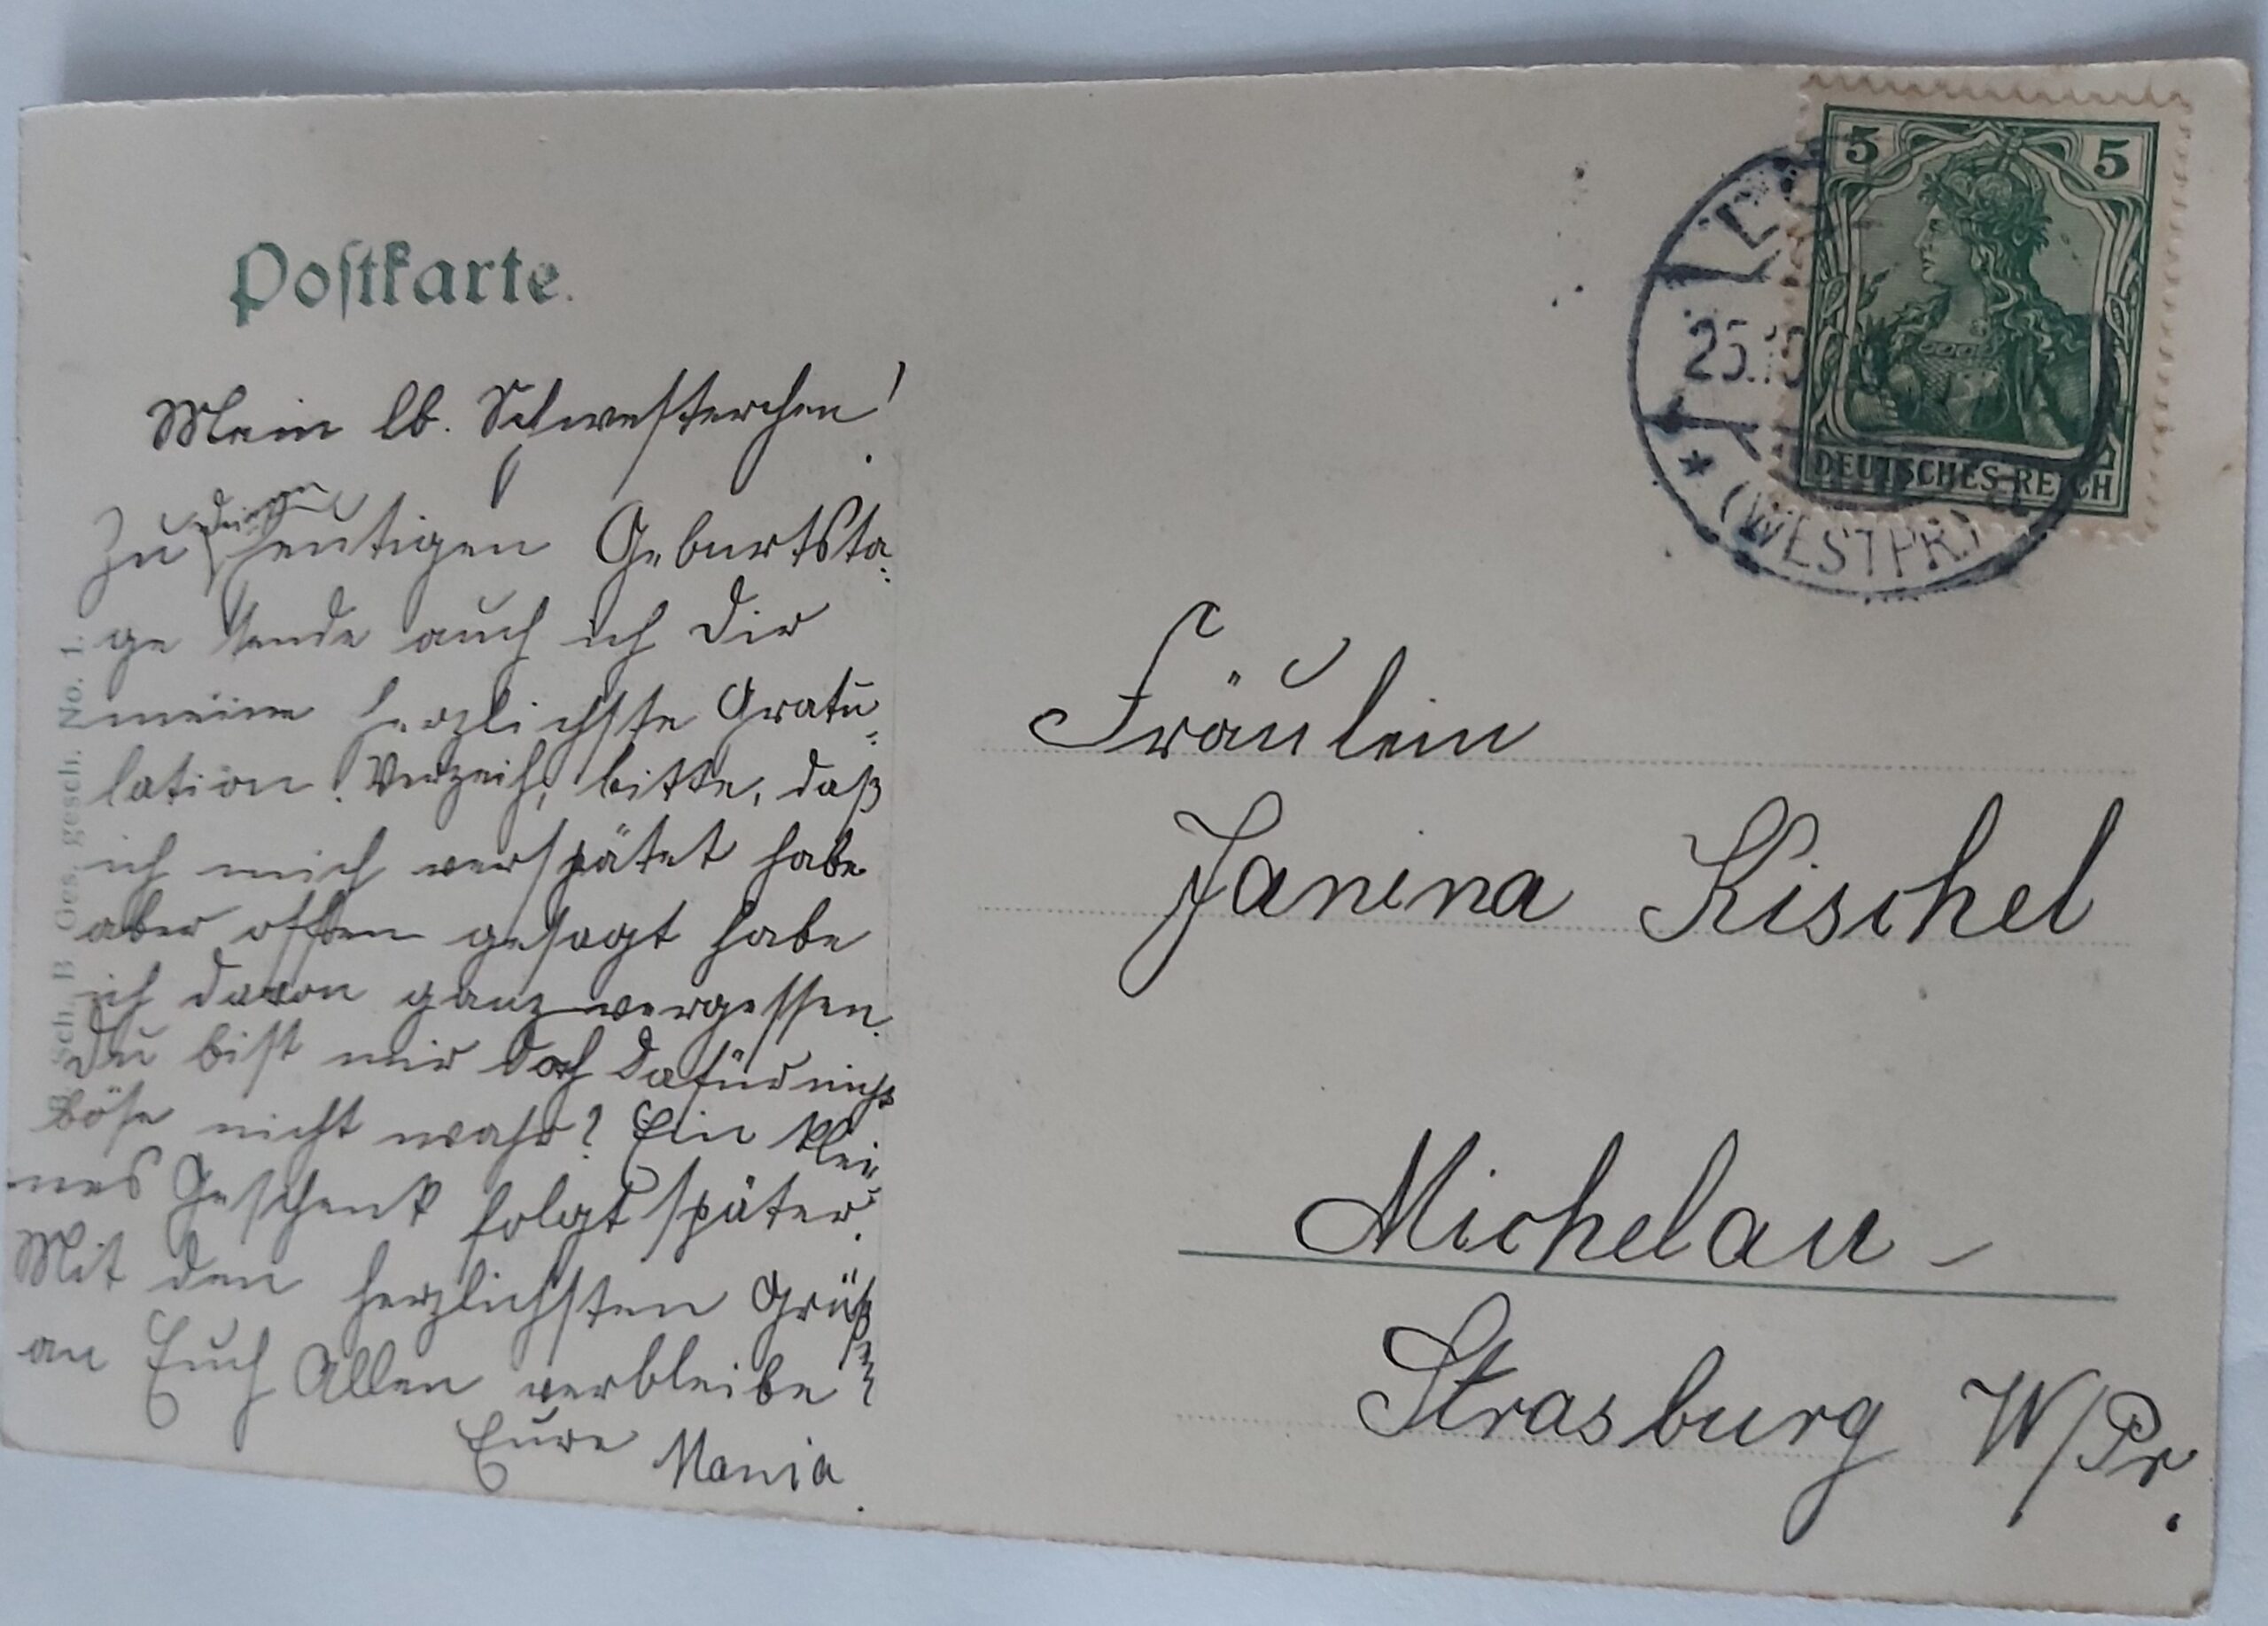 Postkarte.
Mein lb. Schwesterchen!
Zu Deinem heutigen Geburtsta-
ge sende auch ich Dir
meine herzlichste Gratu-
lation! Verzeih, bitte, daß
ich mich verspätet habe
aber offen gesagt habe
ich davon ganz vergessen.
Du bist mir doch dafür nicht
böse nicht wahr? Ein klei-
nes Geschenk folgt später.
Mit den herzlichsten Grüß
an Euch Allen verbleibe
Eure Mania.
B. Sch. B Ges. gesch. No. 1.
5 5
DEUTSCHES REICH
25.10
* (WESTPR.)
Fräulein
Janina Kischel
Michelau -
Strasburg W/Pr.